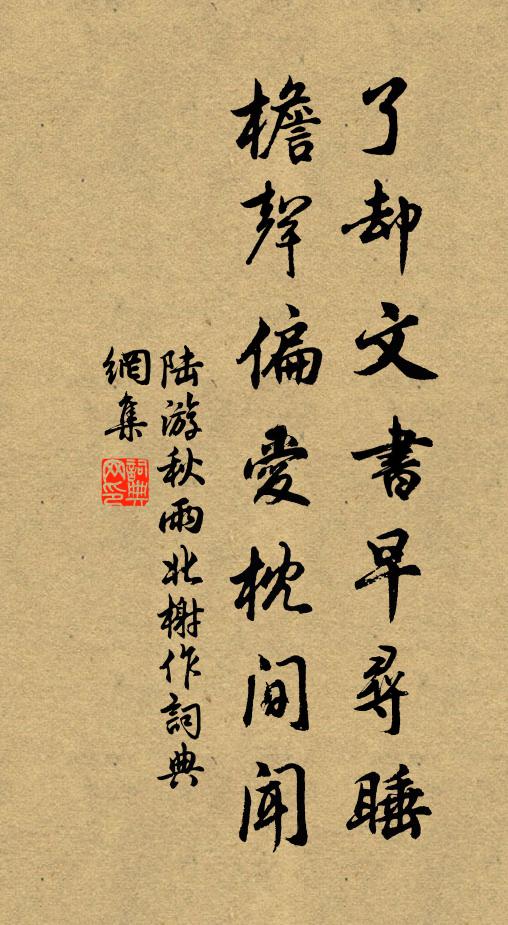 了却文書早尋睡
檐聲偏愛枕间聞
陆游秋雨北榭作詞典
網集
詞典網印